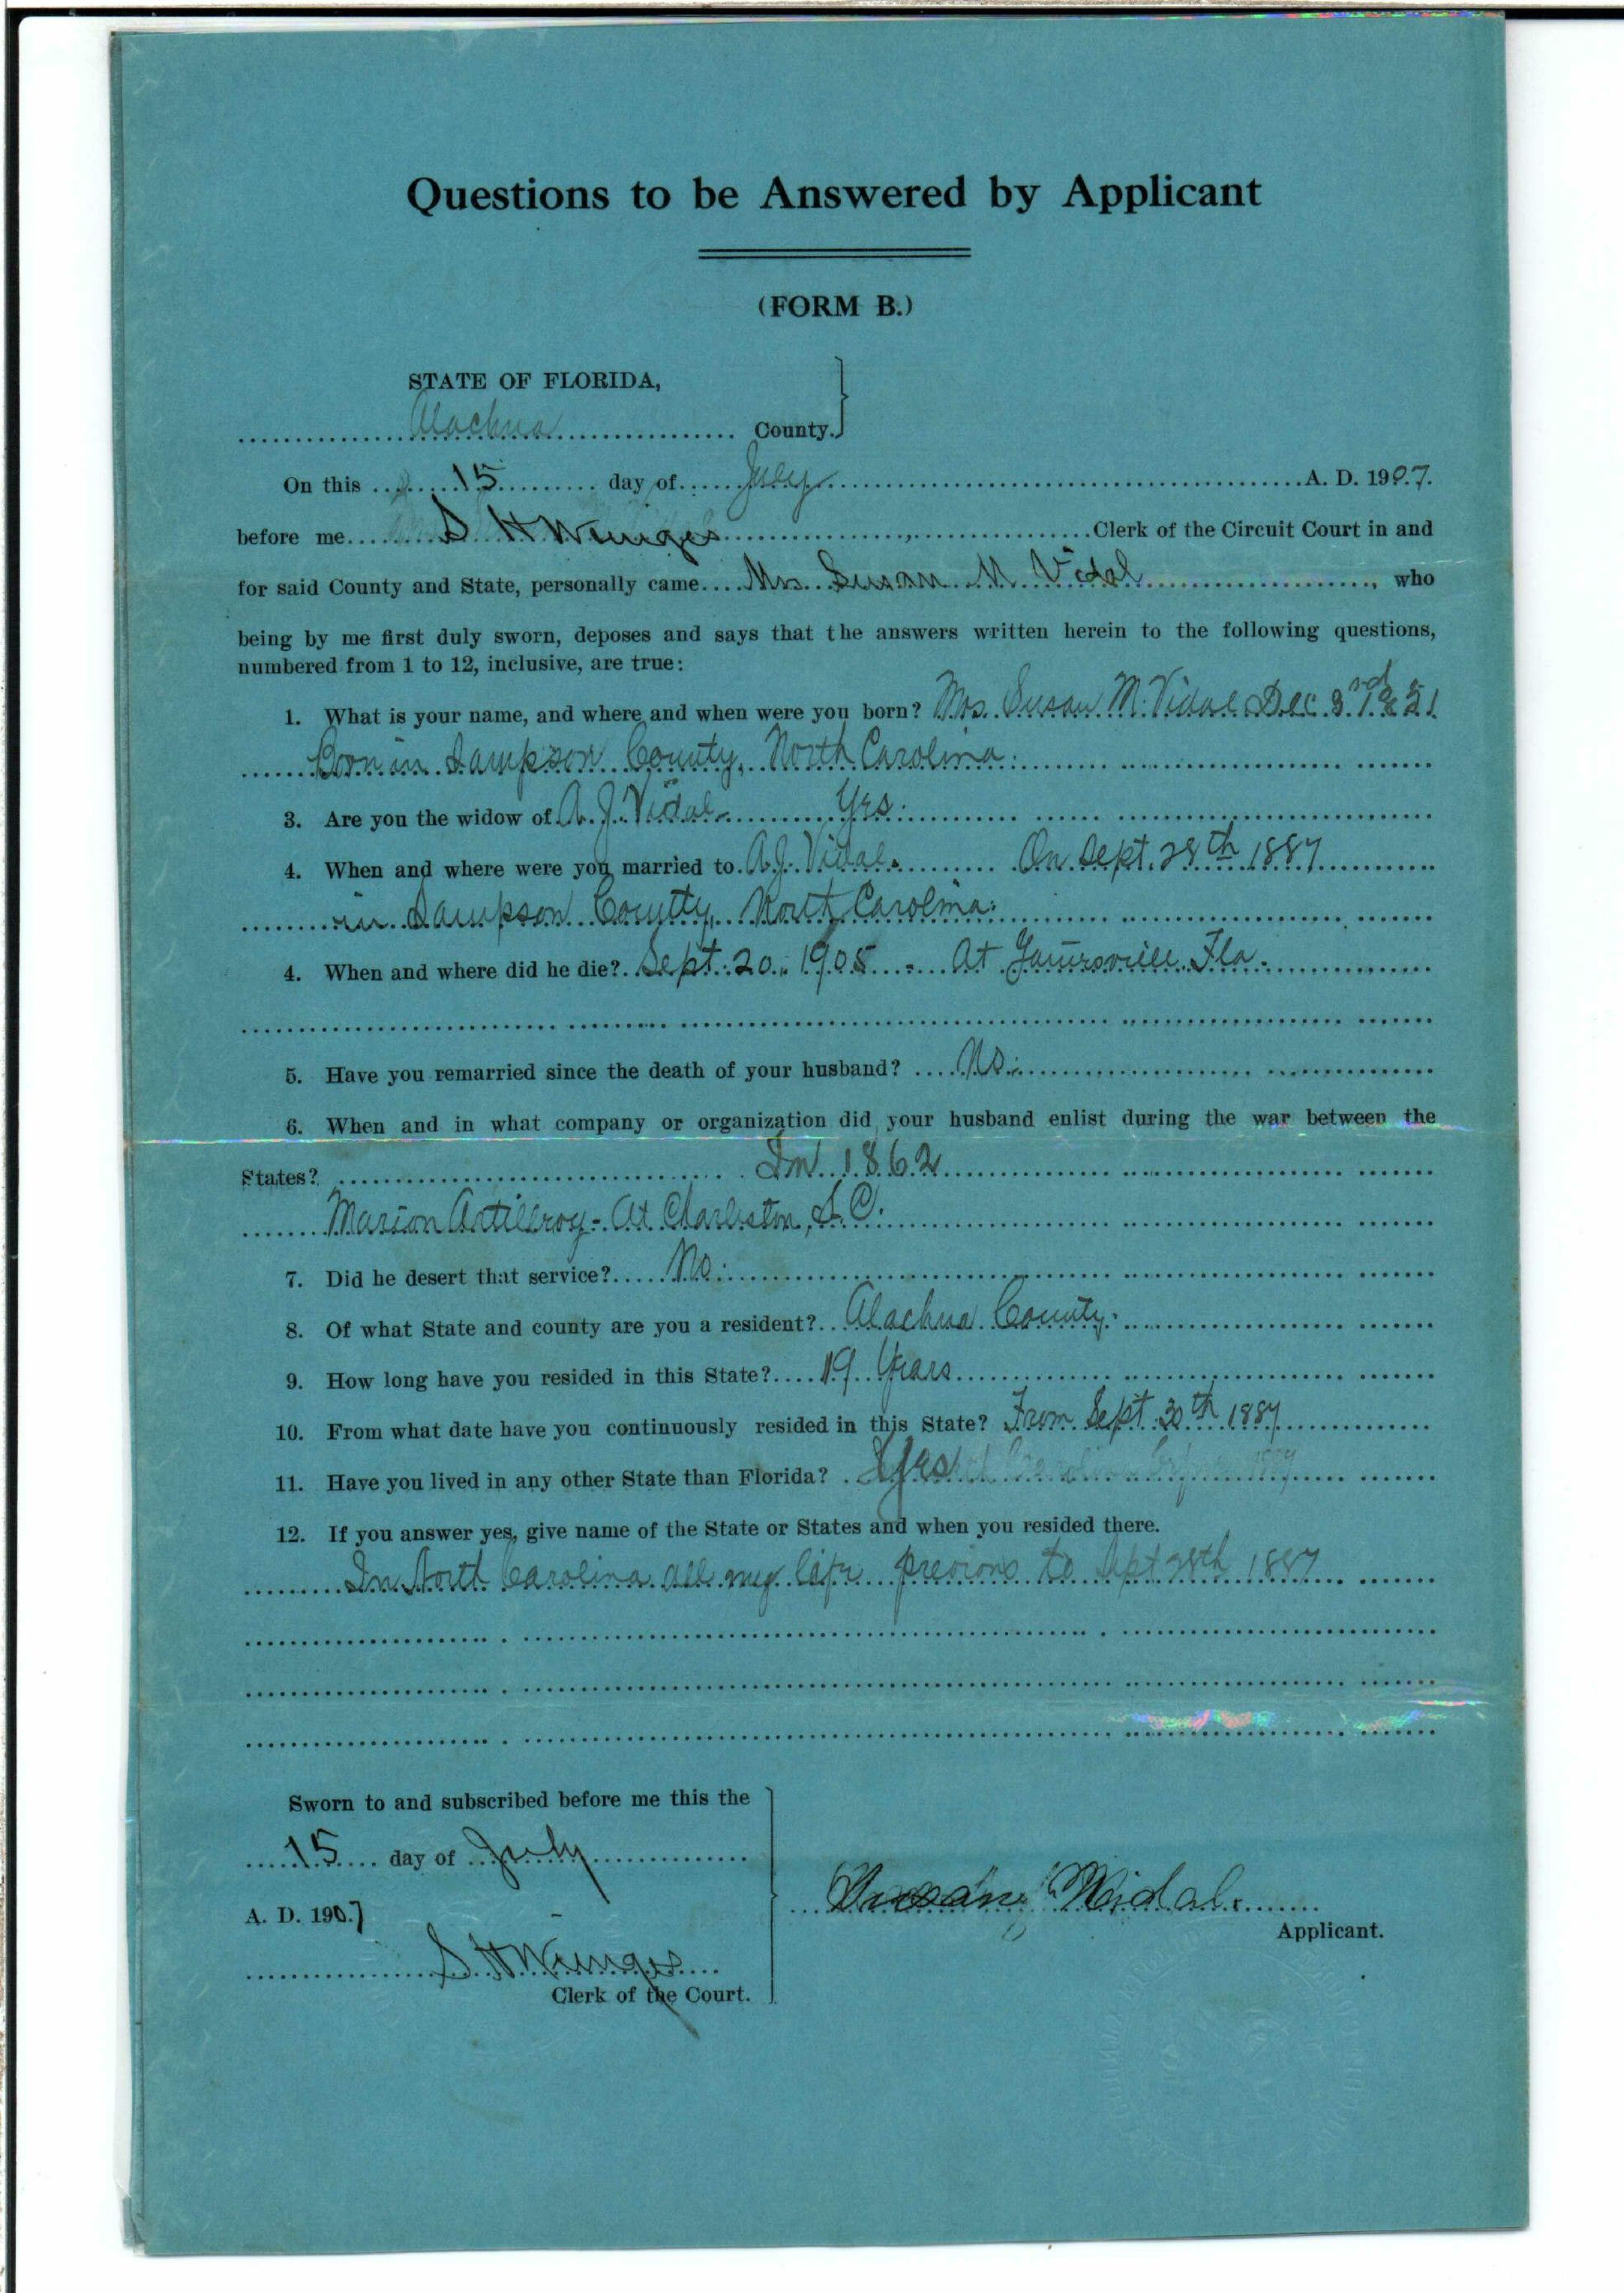 Questions to be Answered by Applicant
(FORM B.)
STATE OF FLORIDA,
Alachua County.
On this 15 day of July A. D. 1907.
before me S H Wienges Clerk of the Circuit Court in and
for said County and State, personally came Mrs. Susan M Vidal, who
being by me first duly sworn, deposes and says that the answers written herein to the following questions,
numbered from 1 to 12, inclusive, are true:
1. What is your name, and where and when were you born? Mrs. Susan M. Vidal Dec. 3rd 1851
Born in Sampson County, North Carolina.
3. Are you the widow of A. J. Vidal. Yes.
4. When and where were you married to A. J. Vidal. On Sept. 28th 1887
in Sampson County, North Carolina.
4. When and where did he die? Sept. 20. 1905 - At Gainesville Fla.
5. Have you remarried since the death of your husband? No.
6. When and in what company or organization did your husband enlist during the war between the
States? In 1862
Marion Artillery - At Charleston, S. C.
7. Did he desert that service? No.
8. Of what State and county are you a resident? Alachua County.
9. How long have you resided in this State? 19 Years
10. From what date have you continuously resided in this State? From Sept. 30th 1887
11. Have you lived in any other State than Florida? Yes
12. If you answer yes, give name of the State or States and when you resided there.
In North Carolina all my life previous to Sept 28th 1887
Sworn to and subscribed before me this the
15 day of July
A. D. 1907
Susan Vidal.
Applicant.
S. H Wienges
Clerk of the Court.